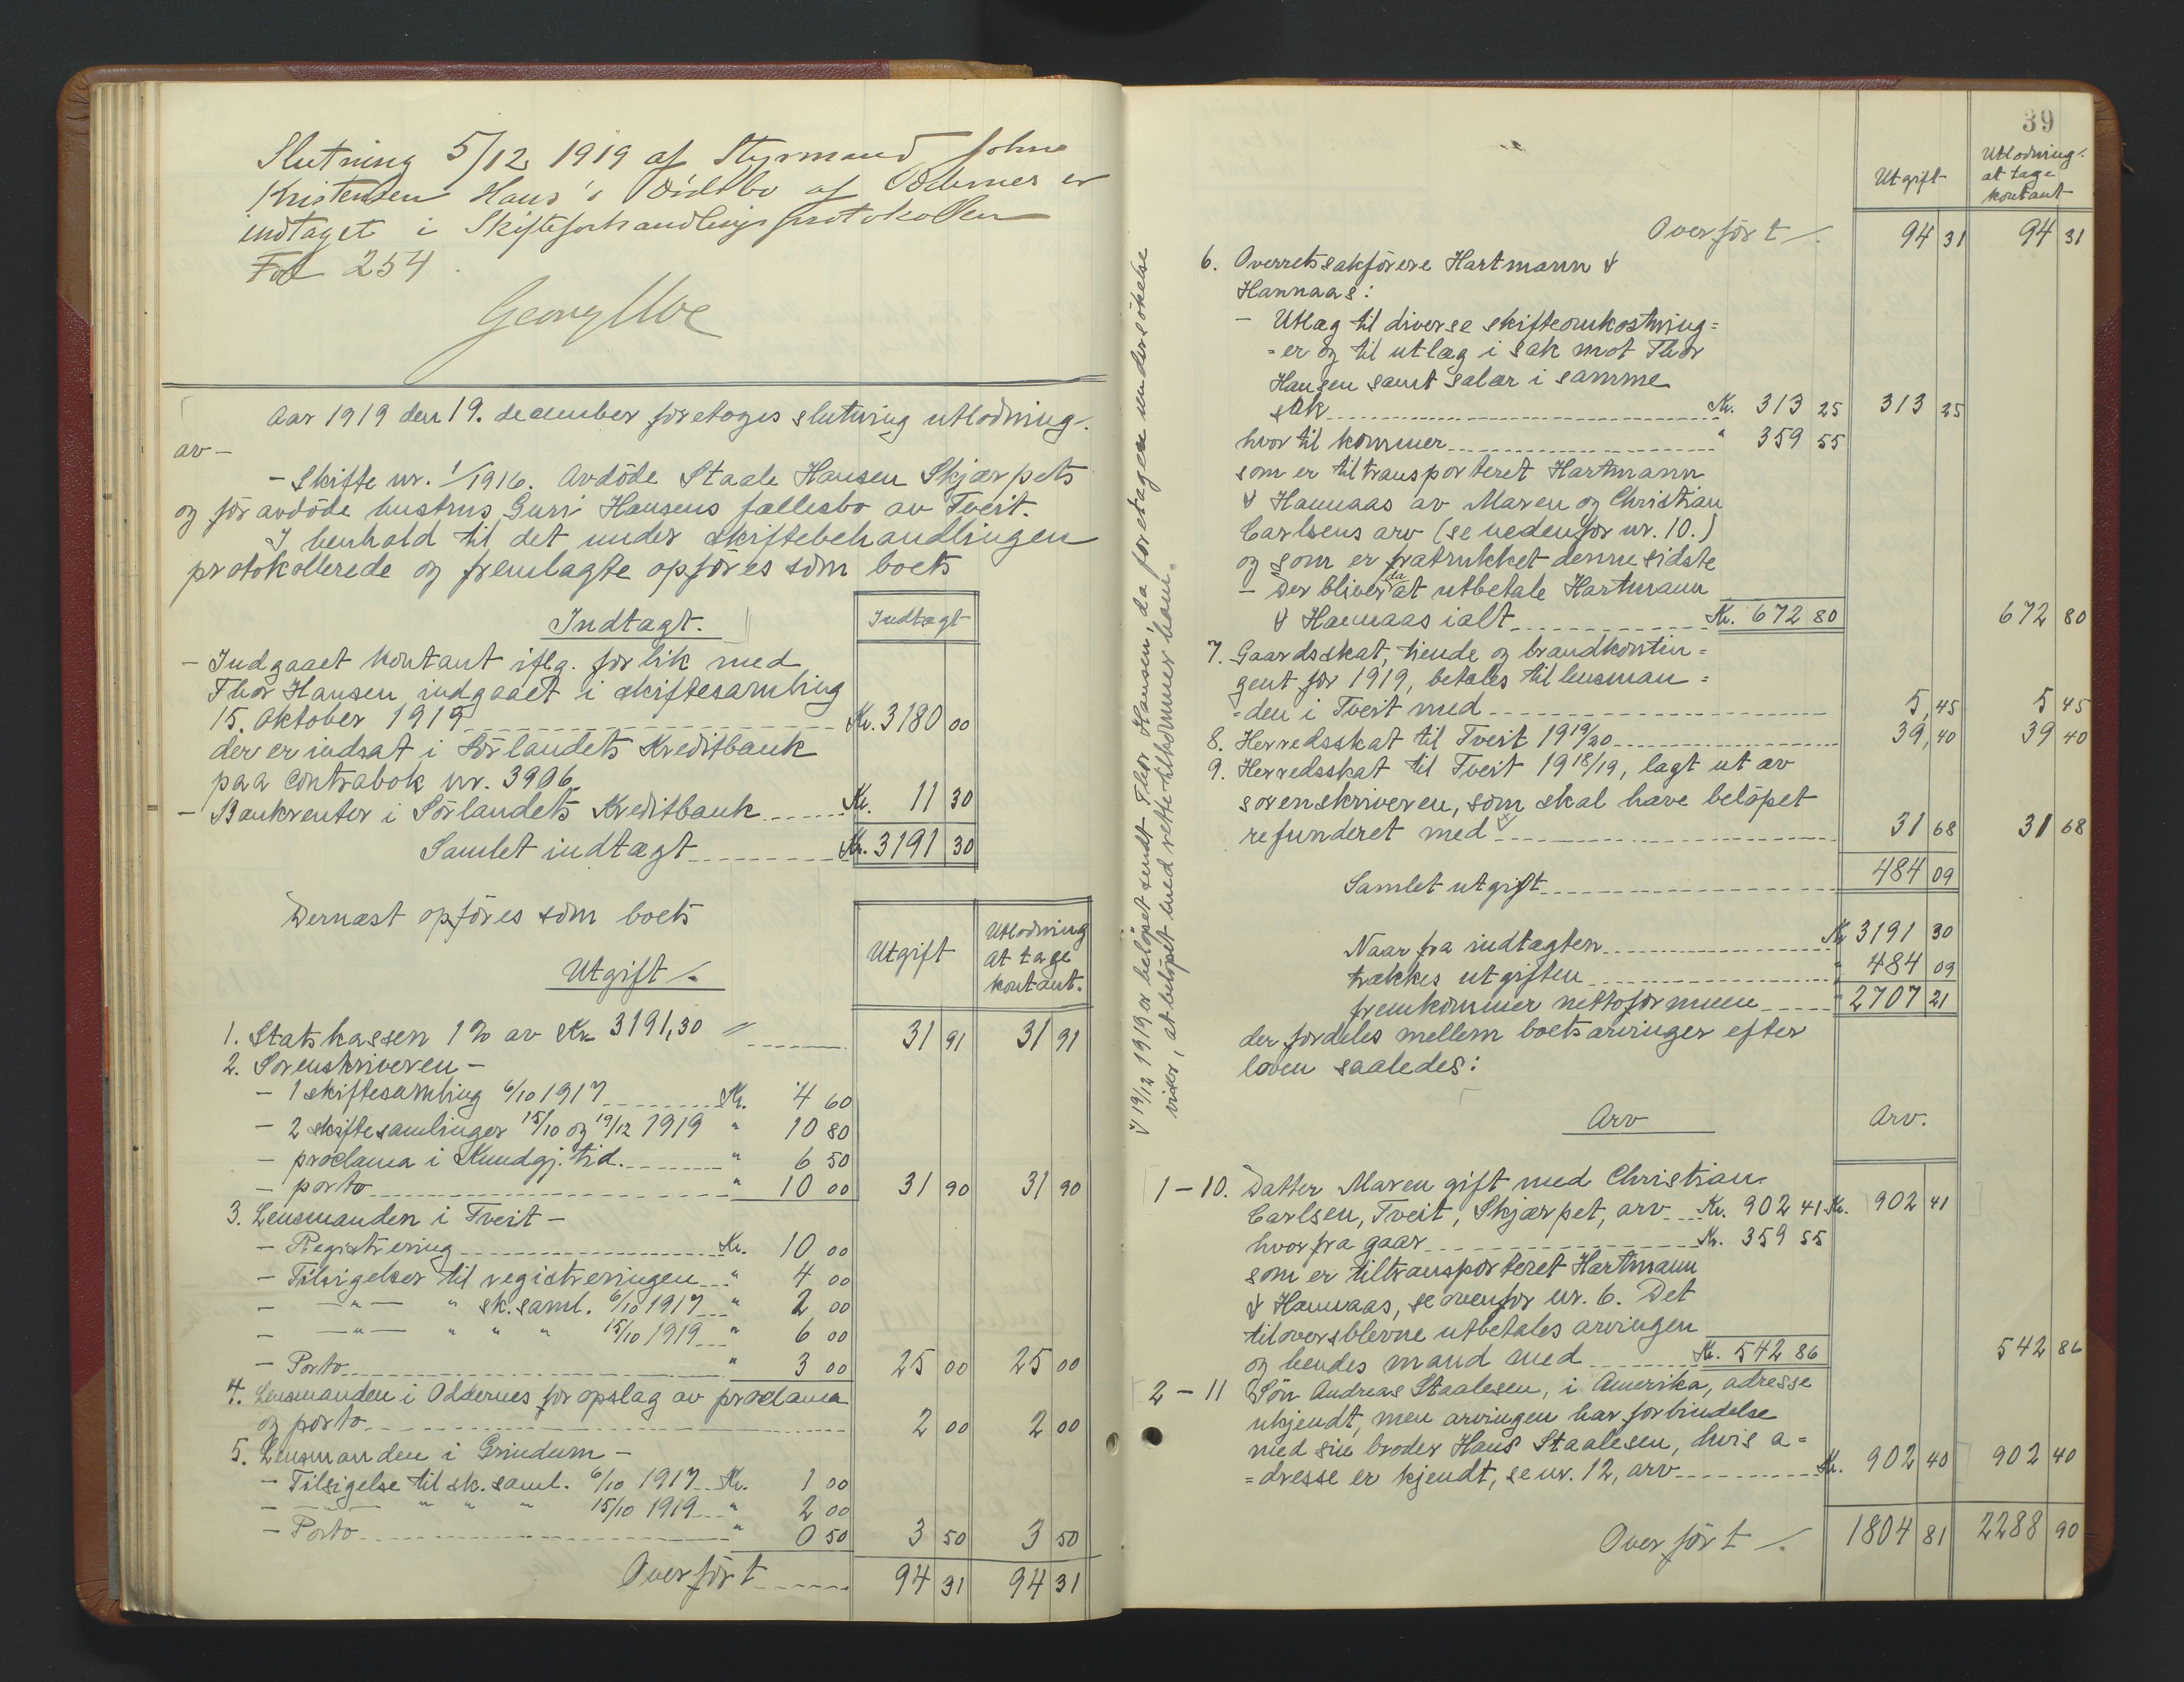 Slutning 5/12 1919 af Styrmand Johne
Kristensen Haus's Dödsbo af Oddernes er
indtaget i Skifteforhandlingsprotokollen
Fol 254.
Georg Moe
Aar 1919 den 19. december foretoges slutning utlodning.
av -
- Skifte nr. 1/1916. Avdöde Staale Hansen Skjærpets
og før avdöde hustrus Guri Hansens fællesbo av Tveit.
I henhold til det under skiftebehandlingen
protokollerede og fremlagte opføres som boets
Indtægt.
Indtægt
- Indgaaet kontant iflg. forlik med
Thor Hansen indgaaet i skiftesamling
15. oktober 1919 Kr. 3180 00
der er indsat i Sörlandets Kreditbank
paa contrabok nr. 3906.
- Bankrenter i Sörlandets Kreditbank Kr. 11 30
Samlet indtægt Kr. 3191 30
Dernæst opføres som boets
Utgift /.
Utgift
Utlodning
at tage
kontant.
1. Statskassen 1% av Kr. 3191,30 // 31 91 31 91
2. Sorenskriveren -
- 1 skiftesamling 6/10 1917 Kr. 4 60
- 2 skiftesamlinger 15/10 og 19/12 1919 " 10 80
- proclama i Kundgj. tid. " 6 50
- porto " 10 00 31 90 31 90
3. Lensmanden i Tveit -
- Registrering Kr. 10 00
- Tilsigelser til registreringen " 4 00
- —"— " sk. saml. 6/10 1917 " 2 00
- —"— " " " 15/10 1919 " 6 00
- Porto " 3 00 25 00 25 00
4. Lensmanden i Oddernes for opslag av proclama
og porto 2 00 2 00
5. Lensmanden i Grindum -
- Tilsigelse til sk. saml. 6/10 1917 Kr. 1 00
- —"— " " " 15/10 1919 " 2 00
- Porto " 0 50 3 50 3 50
Overført 94 31 94 31
√ 19/12 1919 er beløpet sendt Thor Hansen, da foretagen undersøkelse
viser, at beløpet med rette tilkommer ham.
39
Utgift
Utlodning.
at tage
kontant
Overført /. 94 31 94 31
6. Overretssakførere Hartmann &
Hannaas:
- Utlæg til diverse skifteomkostning=
=er og til utlæg i sak mot Thor
Hansen samt salær i samme
sak Kr. 313 25 313 25
hvortil kommer " 359 55
som er tiltransporteret Hartmann
& Hannaas av Maren og Christian
Carlsens arv (se nedenfor nr. 10.)
og som er fratrukket denne sidste
- Der bliver da at utbetale Hartmann
& Hannaas ialt Kr. 672 80 672 80
7. Gaardsskat, tiende og brandkontin=
gent for 1919, betales til lensman=
=den i Tveit med 5,45 5 45
8. Herredsskat til Tveit 1919/20 39,40 39 40
9. Herredsskat til Tveit 1918/19, lagt ut av
sorenskriveren, som skal have beløpet
refunderet med √ 31 68 31 68
Samlet utgift 484 09
Naar fra indtægten Kr 3191 30
trækkes utgiften " 484 09
fremkommer nettoformuen " 2707 21
der fordeles mellem boets arvinger efter
loven saaledes:
Arv
Arv.
1 - 10. Datter Maren gift med Christian
Carlsen, Tveit, Skjærpet, arv Kr. 902 41 Kr. 902 41
hvorfra gaar Kr. 359 55
som er tiltransporteret Hartmann
& Hannaas, se ovenfor nr. 6. Det
tiloversblevne utbetales arvingen
og hendes mand med Kr. 542 86 542 86
2 - 11 Sön Andreas Staalesen, i Amerika, adresse
ukjendt, men arvingen har forbindelse
med sin broder Hans Staalesen, hvis a=
=dresse er kjendt, se nr. 12, arv Kr. 902 40 902 40
Overført /. 1804 81 2288 90